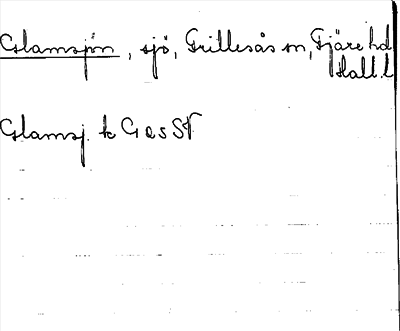 Glamsjön, sjö, Grillesås sn, Fjäre hd
Hall. l
Glamsj. k G a s St